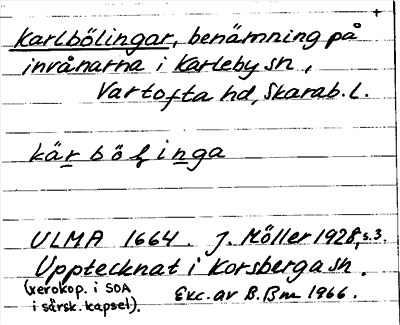 +
Karlbölingar, benämning på
invånarna i Karleby sn,
Vartofta hd, Skarab. l.
kär böl inga
ULMA 1664. J. Möller 1928, s. 3.
Upptecknat i Korsberga sn.
(xerokop. i SOA
i särsk. kapsel). Exc. av B. Bm 1966.